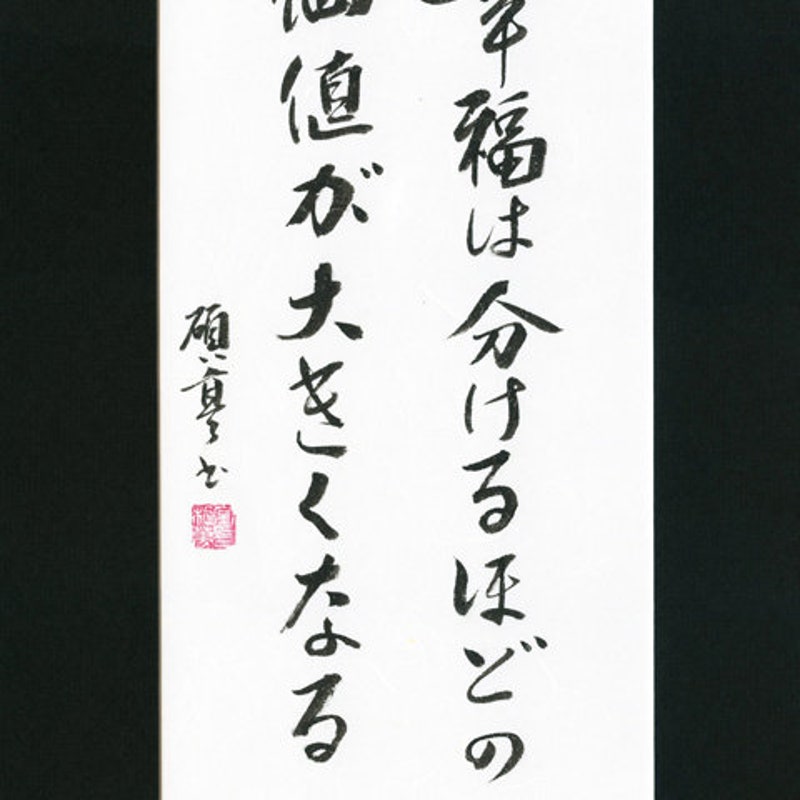 幸福は分けるほどの
価値が大きくなる
書